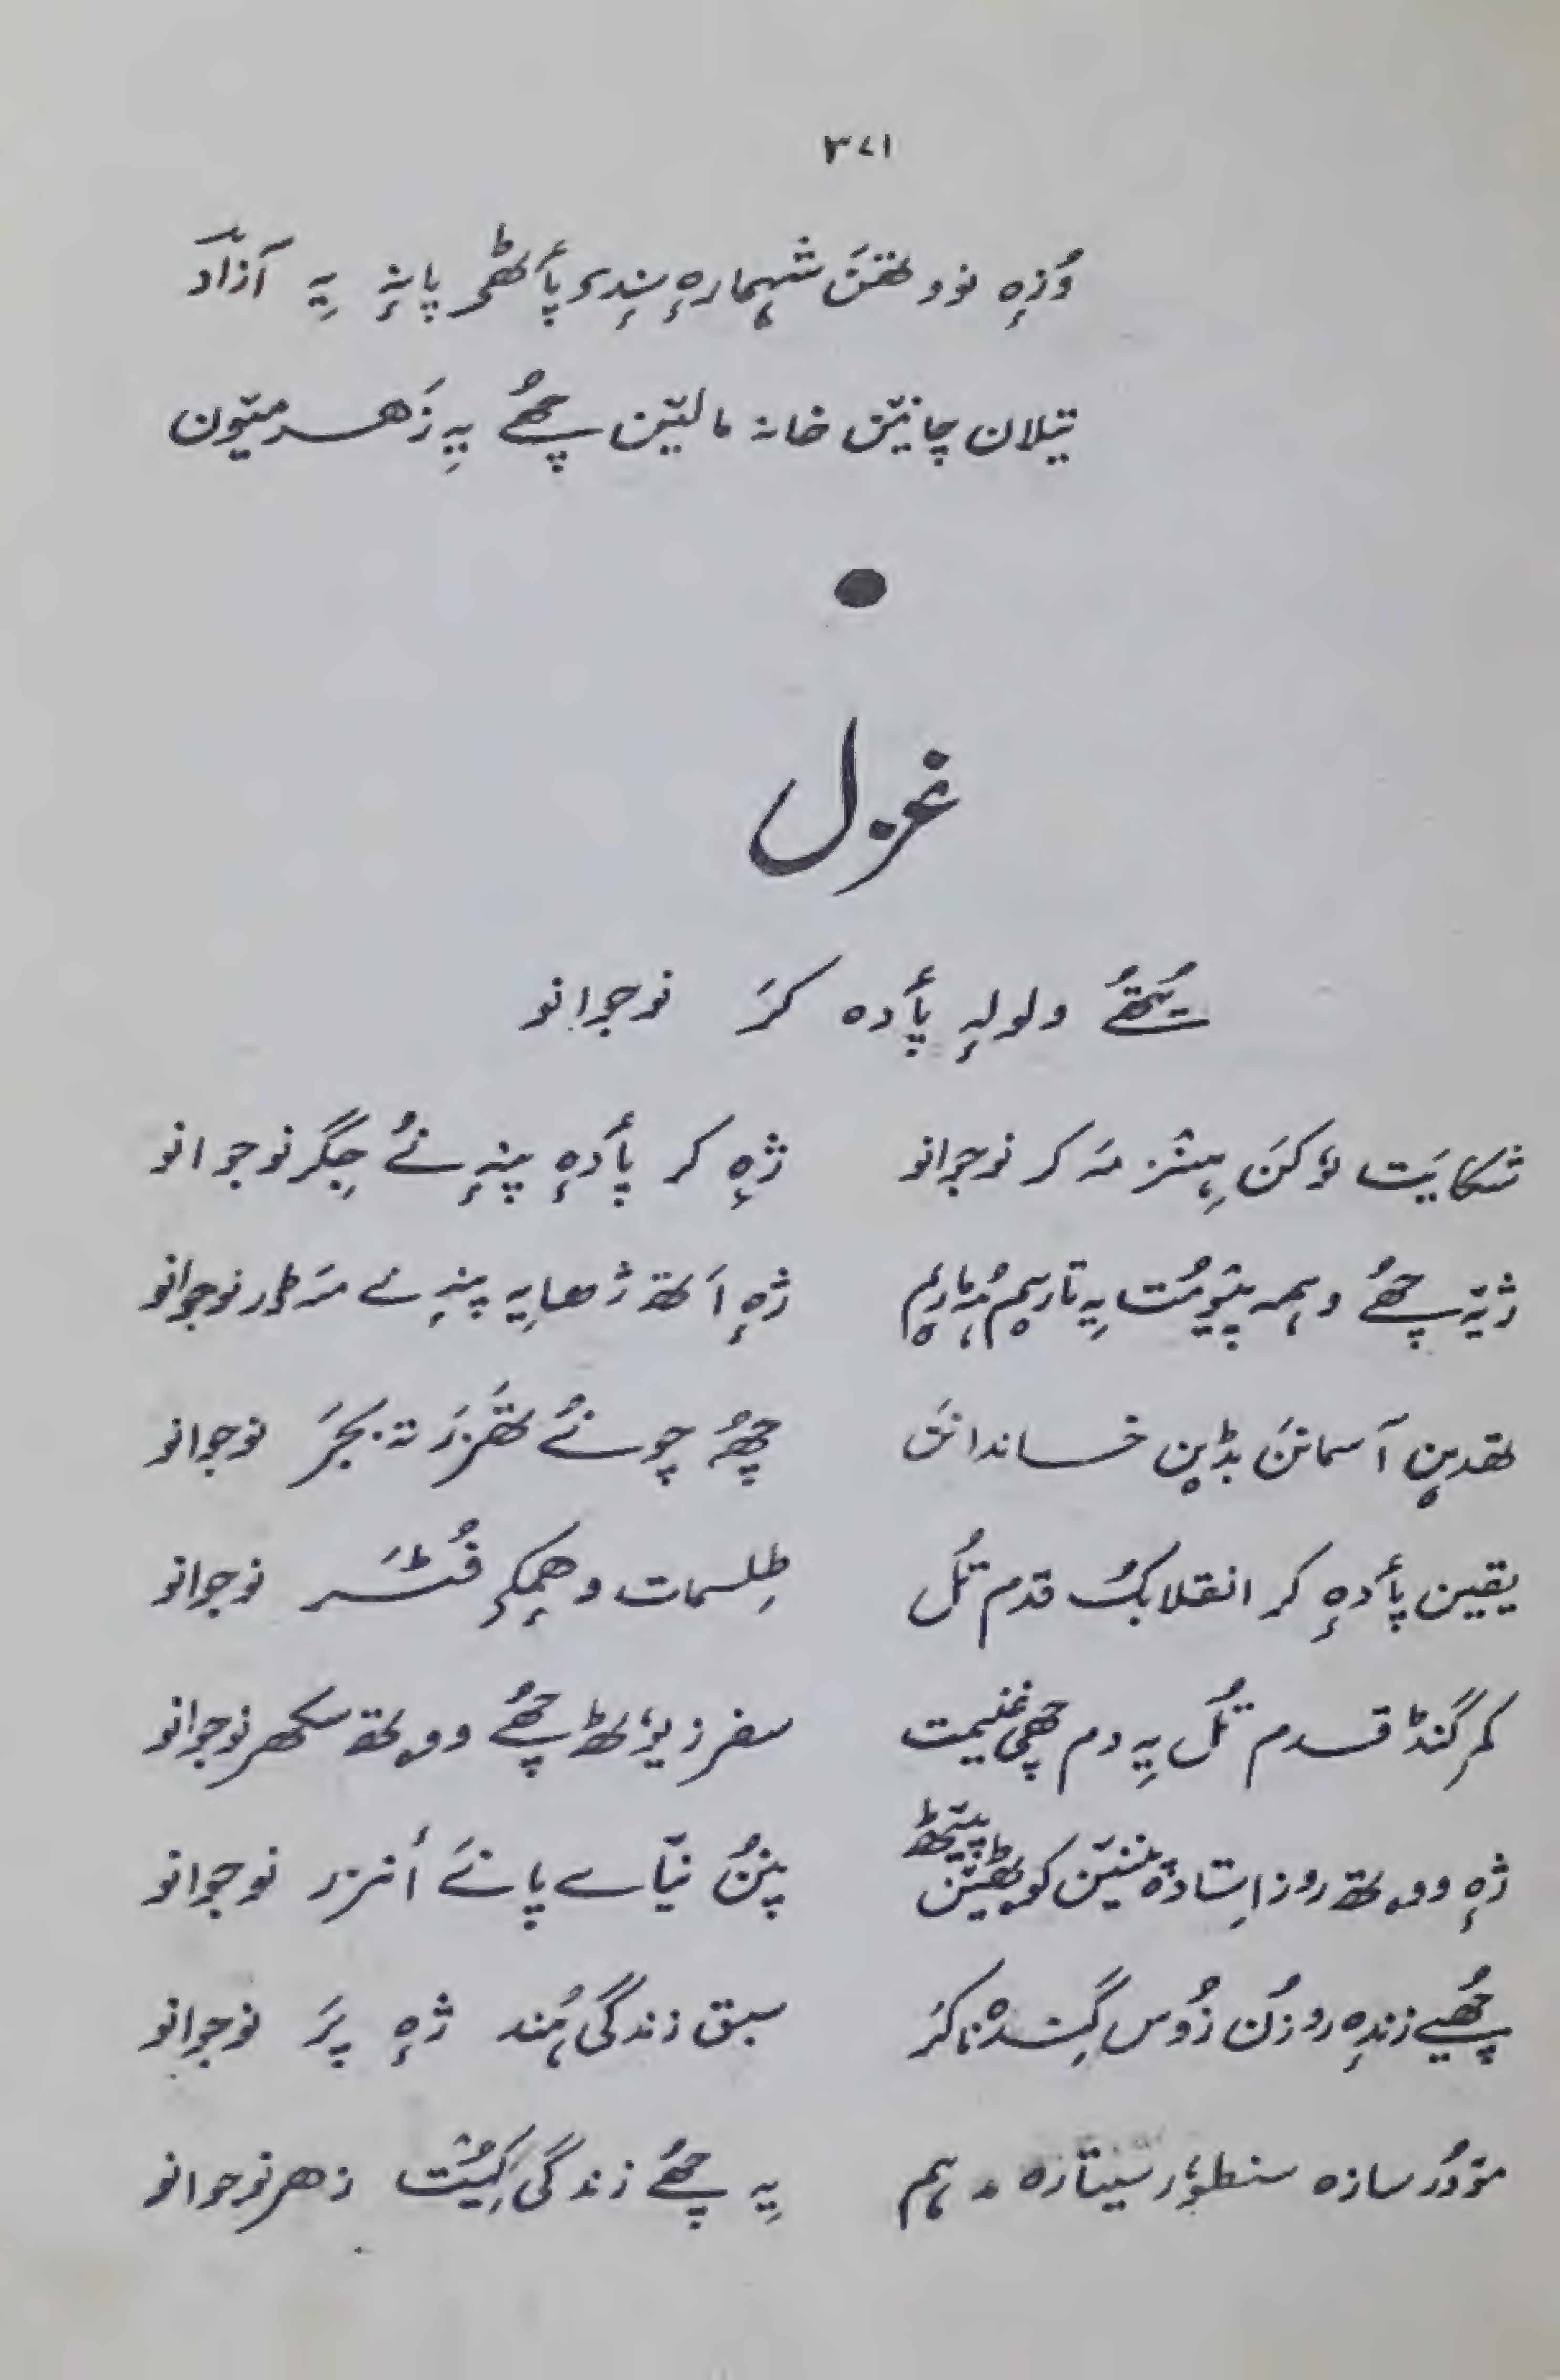 ۳۷۱
وُزہٕ نوو لقتن شہمارہٕ سٕندۍ پأٹھۍ پانہٕ یہِ آزاد
تیلان چانیَن خانہٕ مالیَن چھُے یہِ زَہر میون
غزل
یُتھُے ولولہٕ پأدہ کَر نوجوانو
شکایَت لۄکَن ہِنٛز مہ کر نوجوانو
ژہٕ کر پأدہٕ پنہٕ نُے جِگر نوجوانو
ژیہ چھُے وہمہ پیومُت یہِ تأریم مُہأریم
ژہٕ اَتھہٕ ژھایہِ پنہِ نے مہ کھور نوجوانو
تقدیٖن آسمانَن بڈیٖن خاندانَن
چھُہ چونُے تھَزر تہٕ بجَر نوجوانو
یقین پأدہٕ کر انقلابُک قدم تُل
طِلسمات وہمکۍ فُٹَر نوجوانو
کمر گنڈ قدم تُل یہِ دم چھی غنیمت
سفر زیوٗٹھ چھُے ووتھ سکھر نوجوانو
ژہٕ ووتھ روز اِستادہٕ پننیَن کوٹھیَن پیٹھ
پنُن نیاے پانَے أنزر نوجوانو
چھُیے زندہٕ روزُن زُوس گِندنا کَر
سبق زندگی ہُند ژہٕ پَر نوجوانو
مۄدُر سازہ سنطوٗر سیتارہ مہ ہم
یہِ چھُے زندگی کِیُت زہر نوجوانو